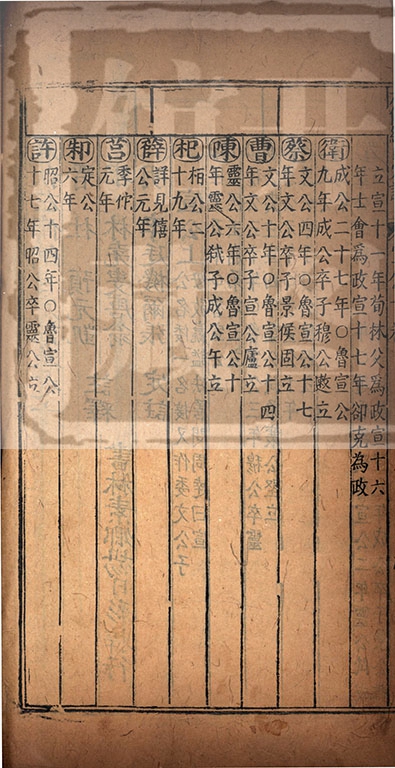 立宣十一年荀林父爲政宣十六
年士會爲政宣十七年郤克為政
衛
成公二十七年○魯宣公
九年成公卒子穆公遬立
蔡
文公四年○魯宣公十七
年文公卒子景侯固立
曹
文公十年○魯宣公十四
年文公卒子宣公廬立
陳
靈公六年○魯宣公十
年靈公弒子成公午立
杞
桓公二
十九年
薛
詳見僖
公元年
莒
季佗
元年
邾
定公
六年
許
昭公十四年○魯宣公
十七年昭公卒靈公立